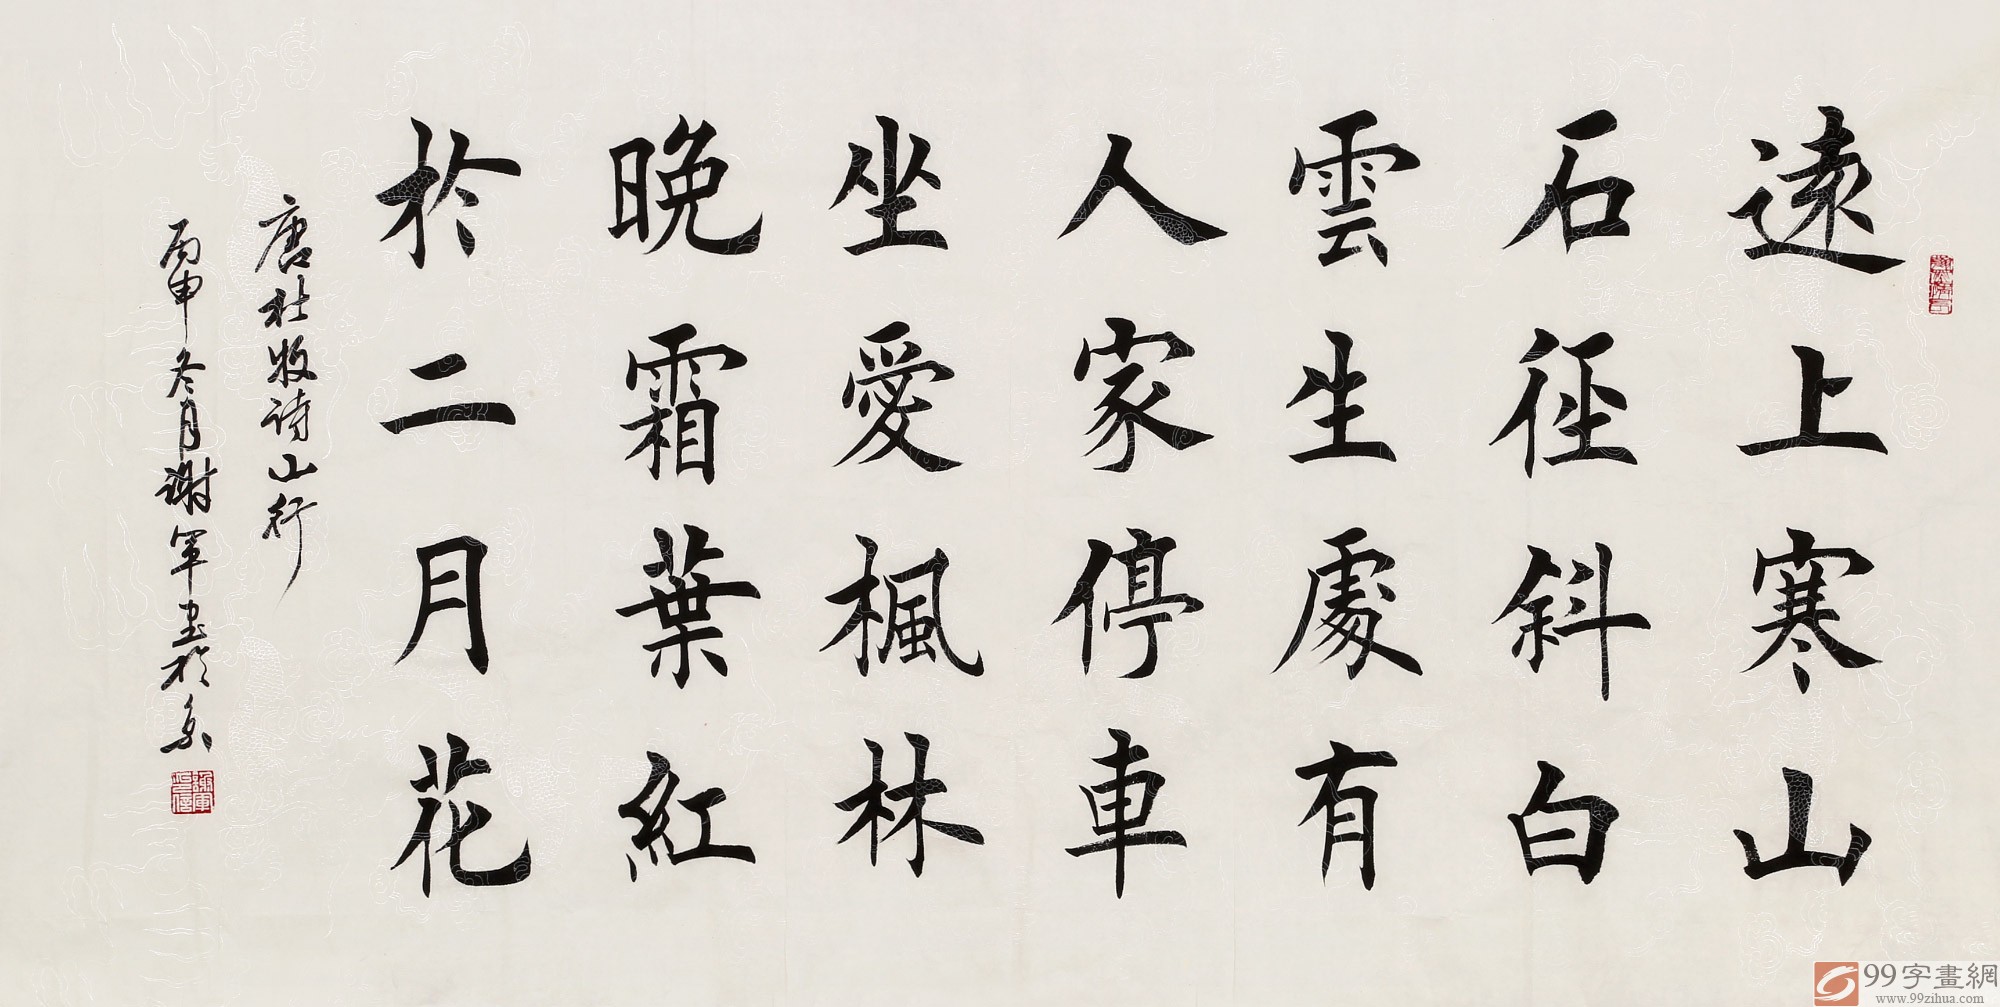 遠上寒山
石徑斜白
雲生處有
人家停車
坐愛楓林
晚霜葉紅
於二月花
唐杜牧诗山行
丙申冬月謝军书於京
謝軍印信
99字畫網
www.99zihua.com